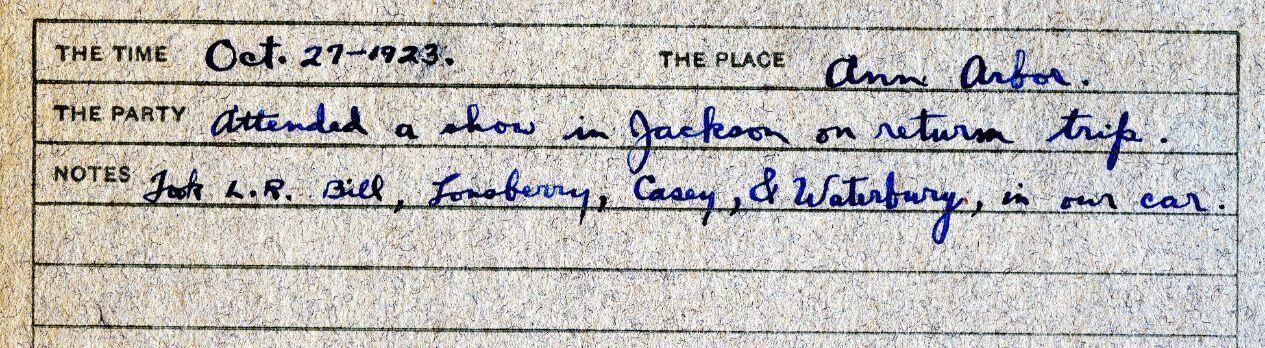 THE TIME Oct. 27-1923. THE PLACE Ann Arbor.
THE PARTY Attended a show in Jackson on return trip.
NOTES Took L.R. Bill, Lonsberry, Casey, & Waterbury, in our car.